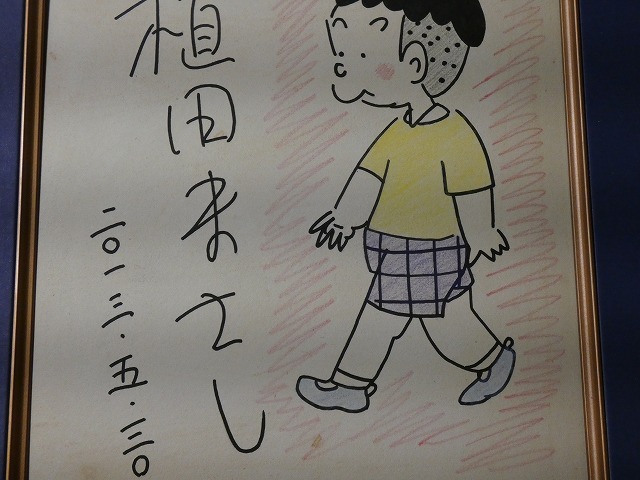 植田まさし
二〇一三・五・三〇